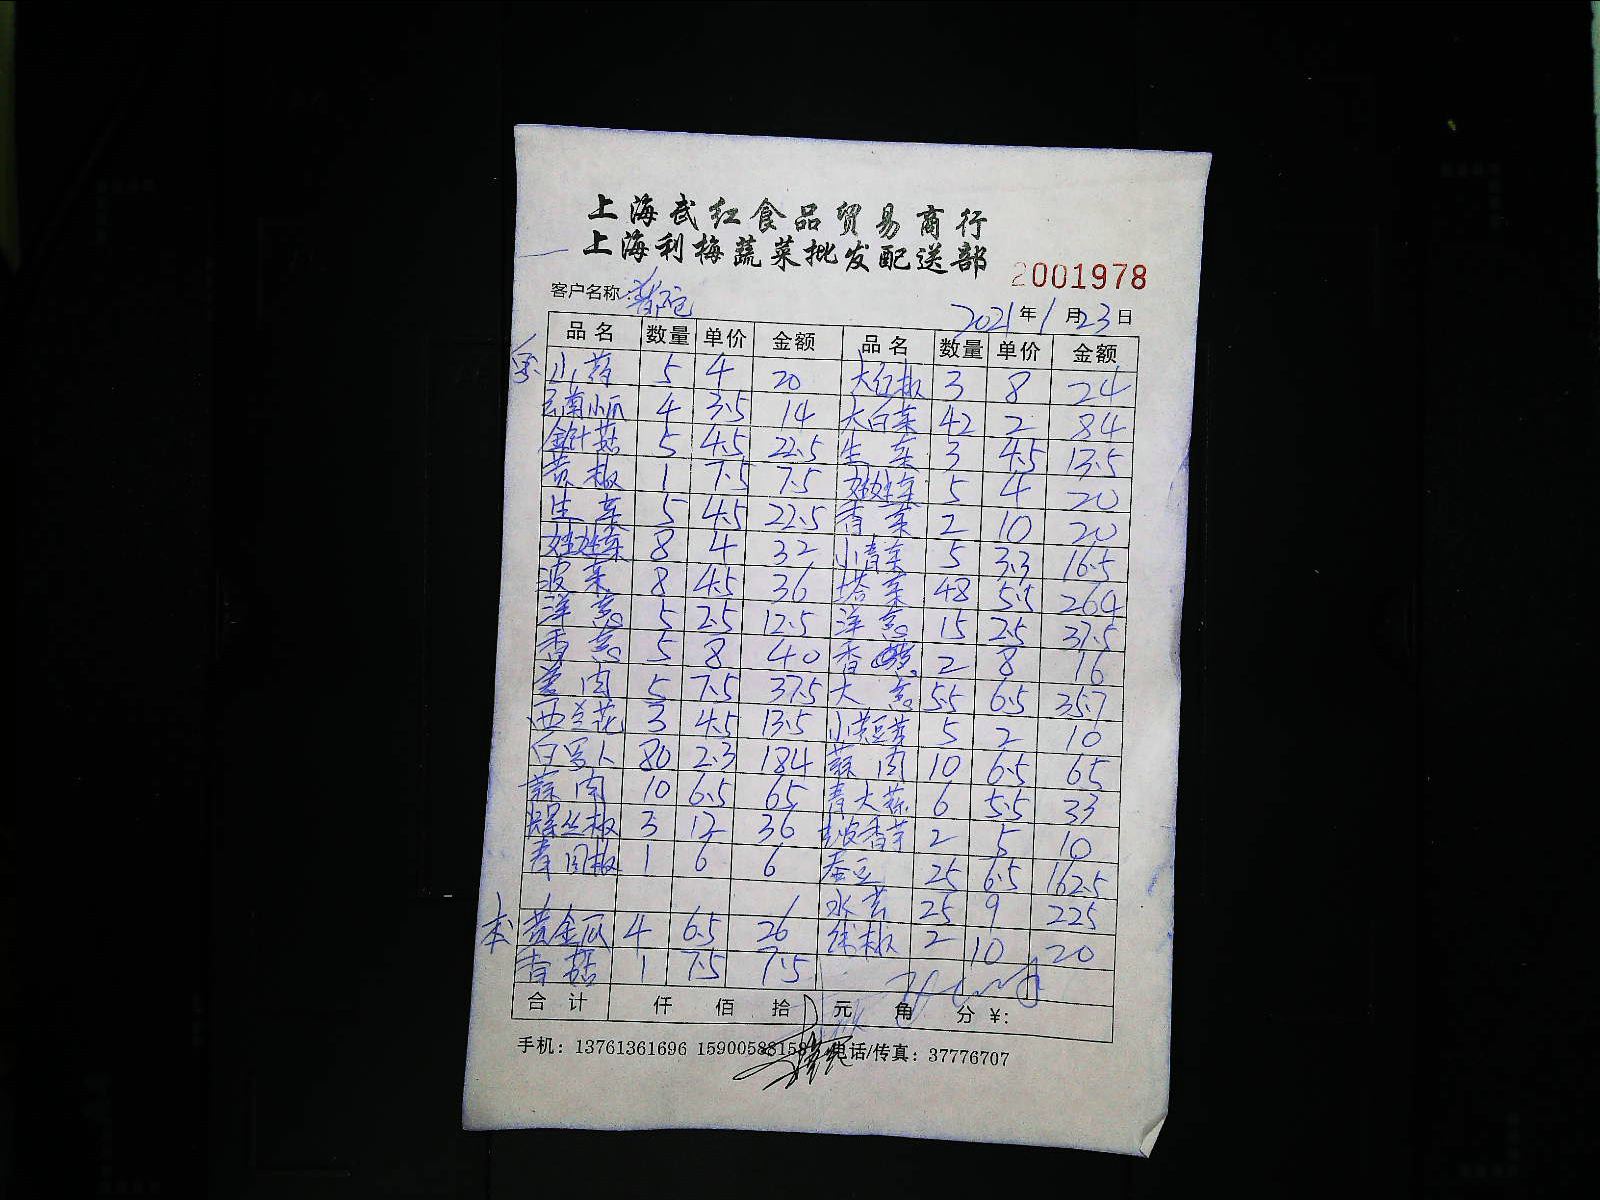 上海武红食品贸易商行
上海利梅蔬菜批发配送部
2001978
客户名称:
2021年1月23日
品名 数量 单价 金额 品名 数量 单价 金额
山药 5 4 20 大红椒 3 8 24
云南小瓜 4 3.5 14 大白菜 42 2 84
金针菇 5 4.5 22.5 生菜 3 4.5 13.5
黄椒 1 7.5 7.5 娃娃菜 5 4 20
生菜 5 4.5 22.5 香菜 2 10 20
娃娃菜 8 4 32 小青菜 5 3.3 16.5
波菜 8 4.5 36 塔菜 48 5.5 264
洋葱 5 2.5 12.5 洋葱 15 2.5 37.5
香葱 5 8 40 香葱 2 8 16
姜肉 5 7.5 37.5 大葱 5.5 6.5 35.7
西兰花 3 4.5 13.5 小黄豆芽 5 2 10
白萝卜 80 2.3 184 蒜肉 10 6.5 65
蒜肉 10 6.5 65 青大蒜 6 5.5 33
螺丝椒 3 12 36 香芋 2 5 10
青园椒 1 6 6 蚕豆 25 6.5 162.5
水芹 25 9 225
本 黄金瓜 4 6.5 26 线椒 2 10 20
香菇 1 7.5 7.5
合计 仟 佰 拾 元 角 分 ¥:
手机: 13761361696 1590058815 电话/传真: 37776707